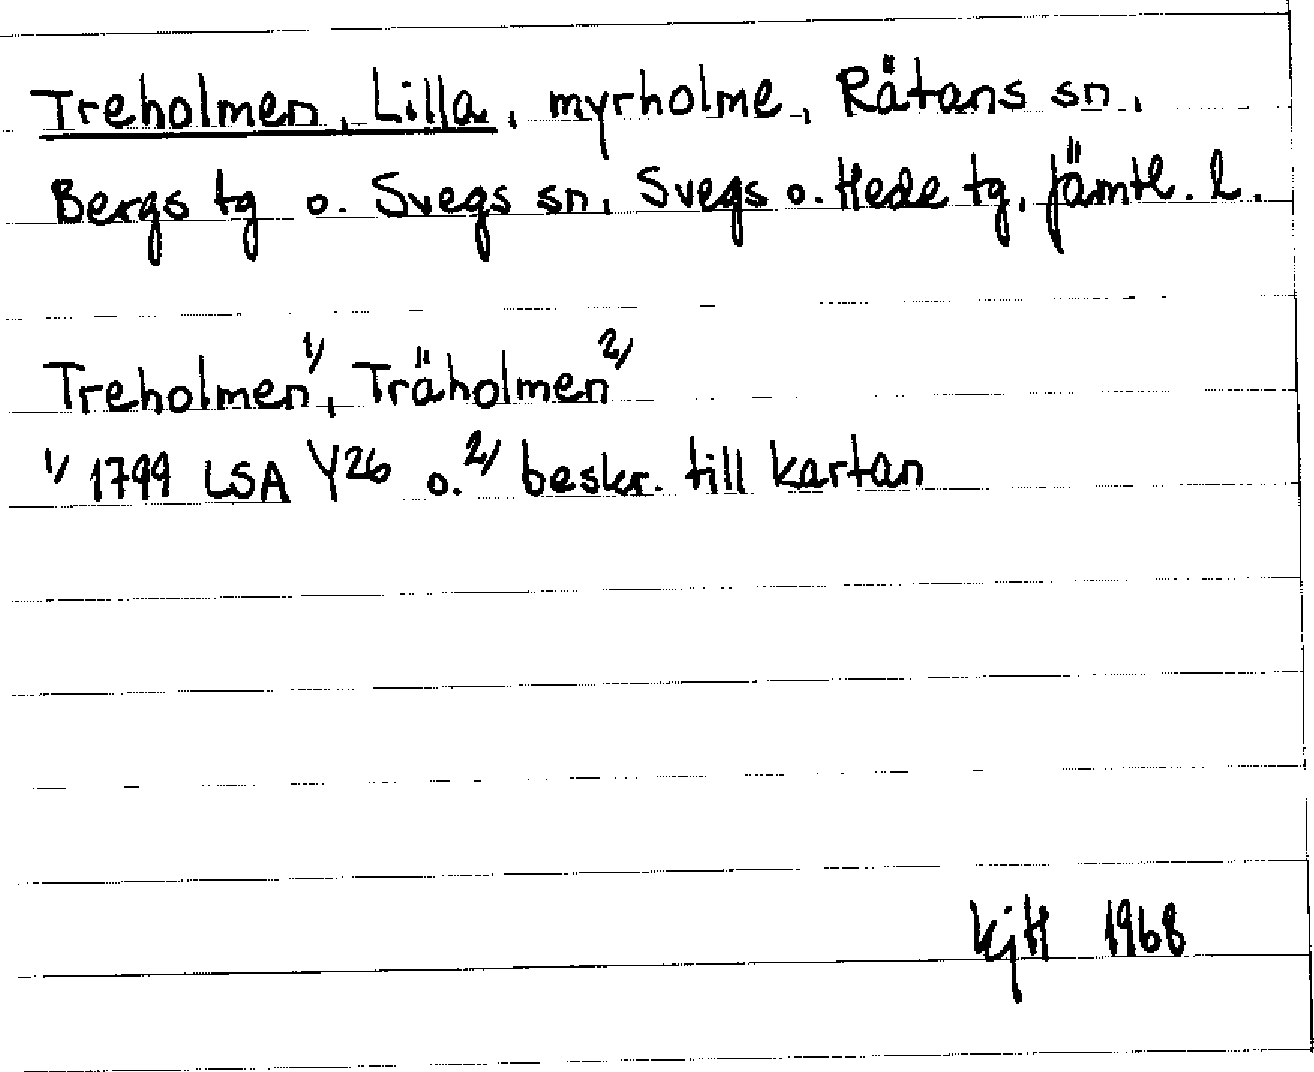 Treholmen, Lilla, myrholme, Rätans sn,
Bergs tg o. Svegs sn, Svegs o. Hede tg, Jämtl. l.
Treholmen 1/, Träholmen 2/
1/ 1799 LSA Y26 o. 2/ beskr. till kartan
KjH 1968